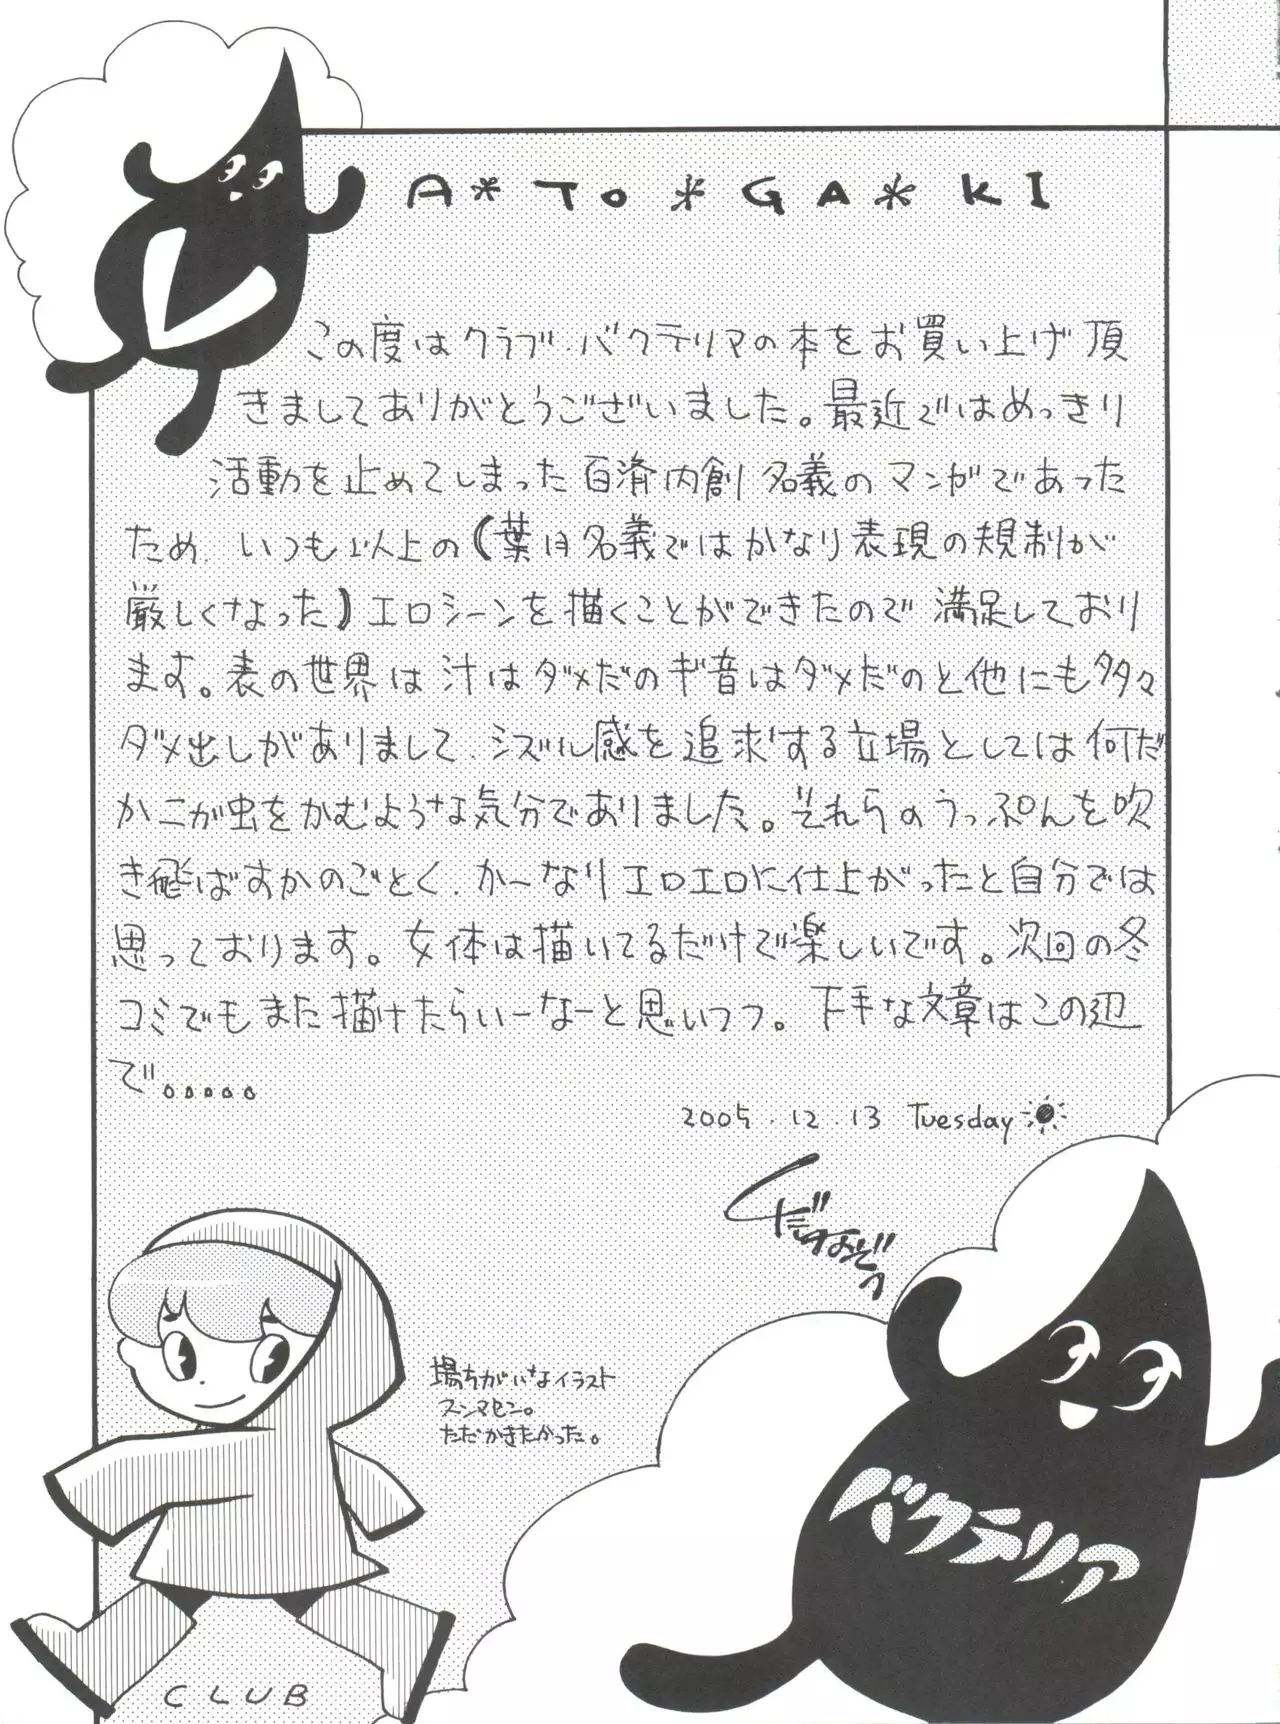 A*TO*GA*KI
この度はクラブ・バクテリアの本をお買い上げ頂
きましてありがとうございました。最近ではめっきり
活動を止めてしまった百済内創名義のマンガであった
ため、いつも以上の(葉月名義ではかなり表現の規制が
厳しくなった)エロシーンを描くことができたので満足しており
ます。表の世界は汁はダメだのギ音はダメだのと他にも多々
ダメ出しがありまして、シズル感を追求する立場としては何だ
かニガ虫をかむような気分でありました。それらのうっぷんを吹
き飛ばすかのごとく、かーなりエロエロに仕上がったと自分では
思っております。女体は描いてるだけで楽しいです。次回の冬
コミでもまた描けたらいーなーと思いつつ。下手な文章はこの辺
で。。。。。
2005.12.13 Tuesday
場ちがいなイラスト
スンマセン。
ただかきたかった。
バクテリア
CLUB